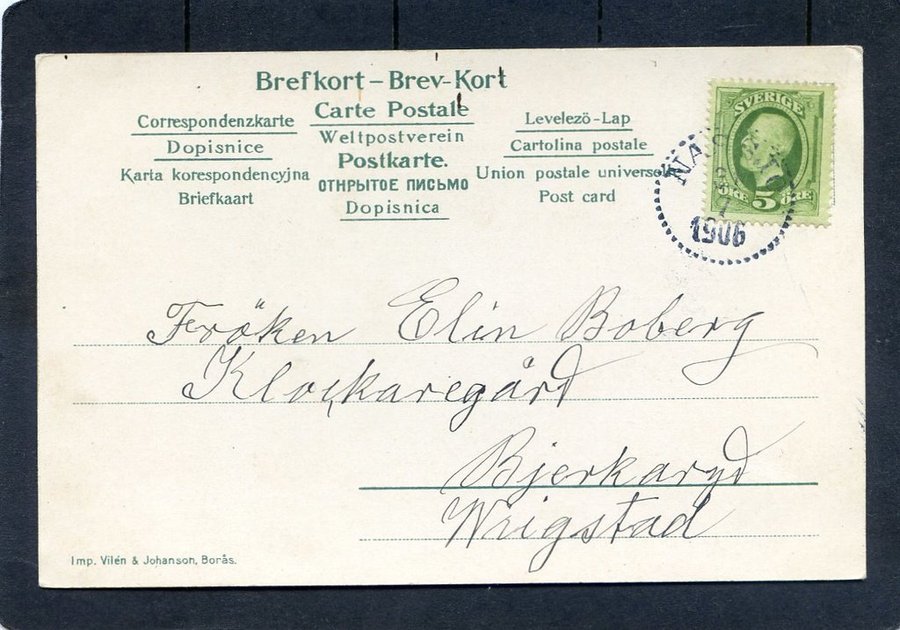 Brefkort – Brev-Kort
Carte Postale
Correspondenzkarte
Weltpostverein
Levelezö-Lap
Dopisnice
Postkarte.
Cartolina postale
Karta korespondencyjna
ОТКРЫТОЕ ПИСЬМО
Union postale universel
Briefkaart
Dopisnica
Post card
SVERIGE
5 ÖRE
1906
Fröken Elin Boberg
Klockaregård
Bjerkaryd
Wrigstad
Imp. Vilén & Johanson, Borås.